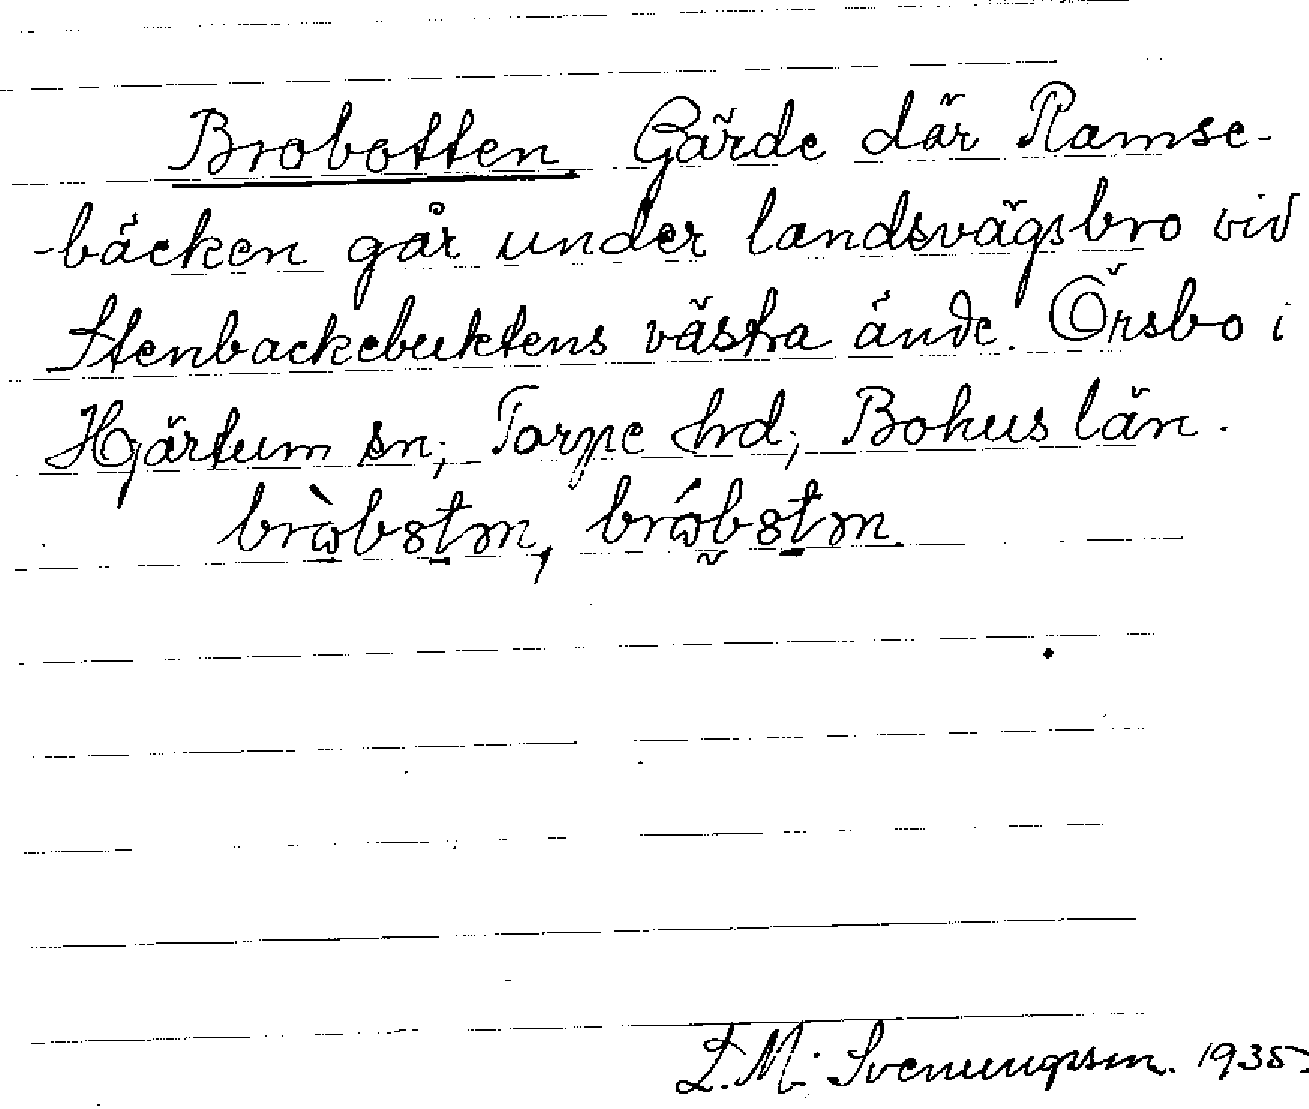 Brobotten. Gärde där Ramse-
-bäcken går under landsvägsbro vid
Stenbackebuktens västra ände. Örsbo i
Hjärtum sn; Torpe hrd; Bohus län.
L. M. Svenungsson. 1935.